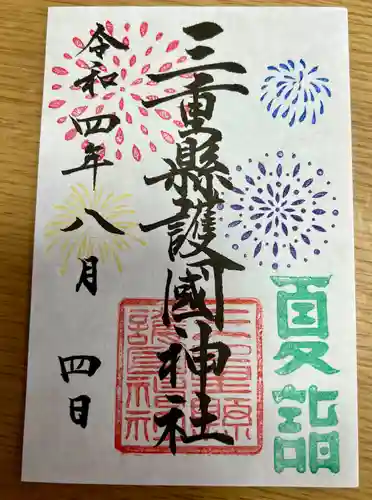 夏詣
三重縣護國神社
三重縣護國神社
令和四年八月四日